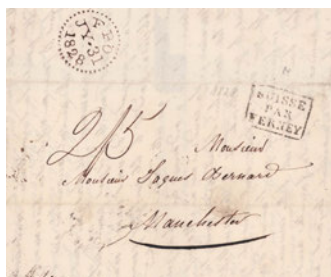 FPO
JY-31
1828
SUISSE
PAR
FERNEY
2/5
Monsieur
Monsieur Jaques Bernard
Manchester